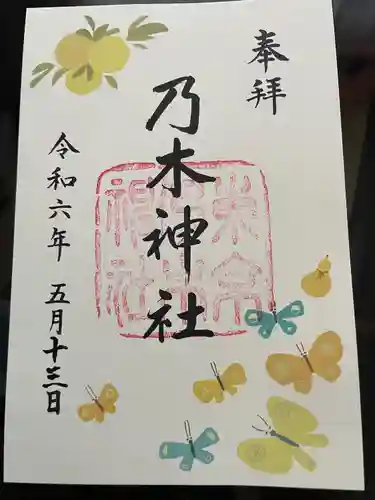 奉拝
乃木神社
令和六年 五月十三日